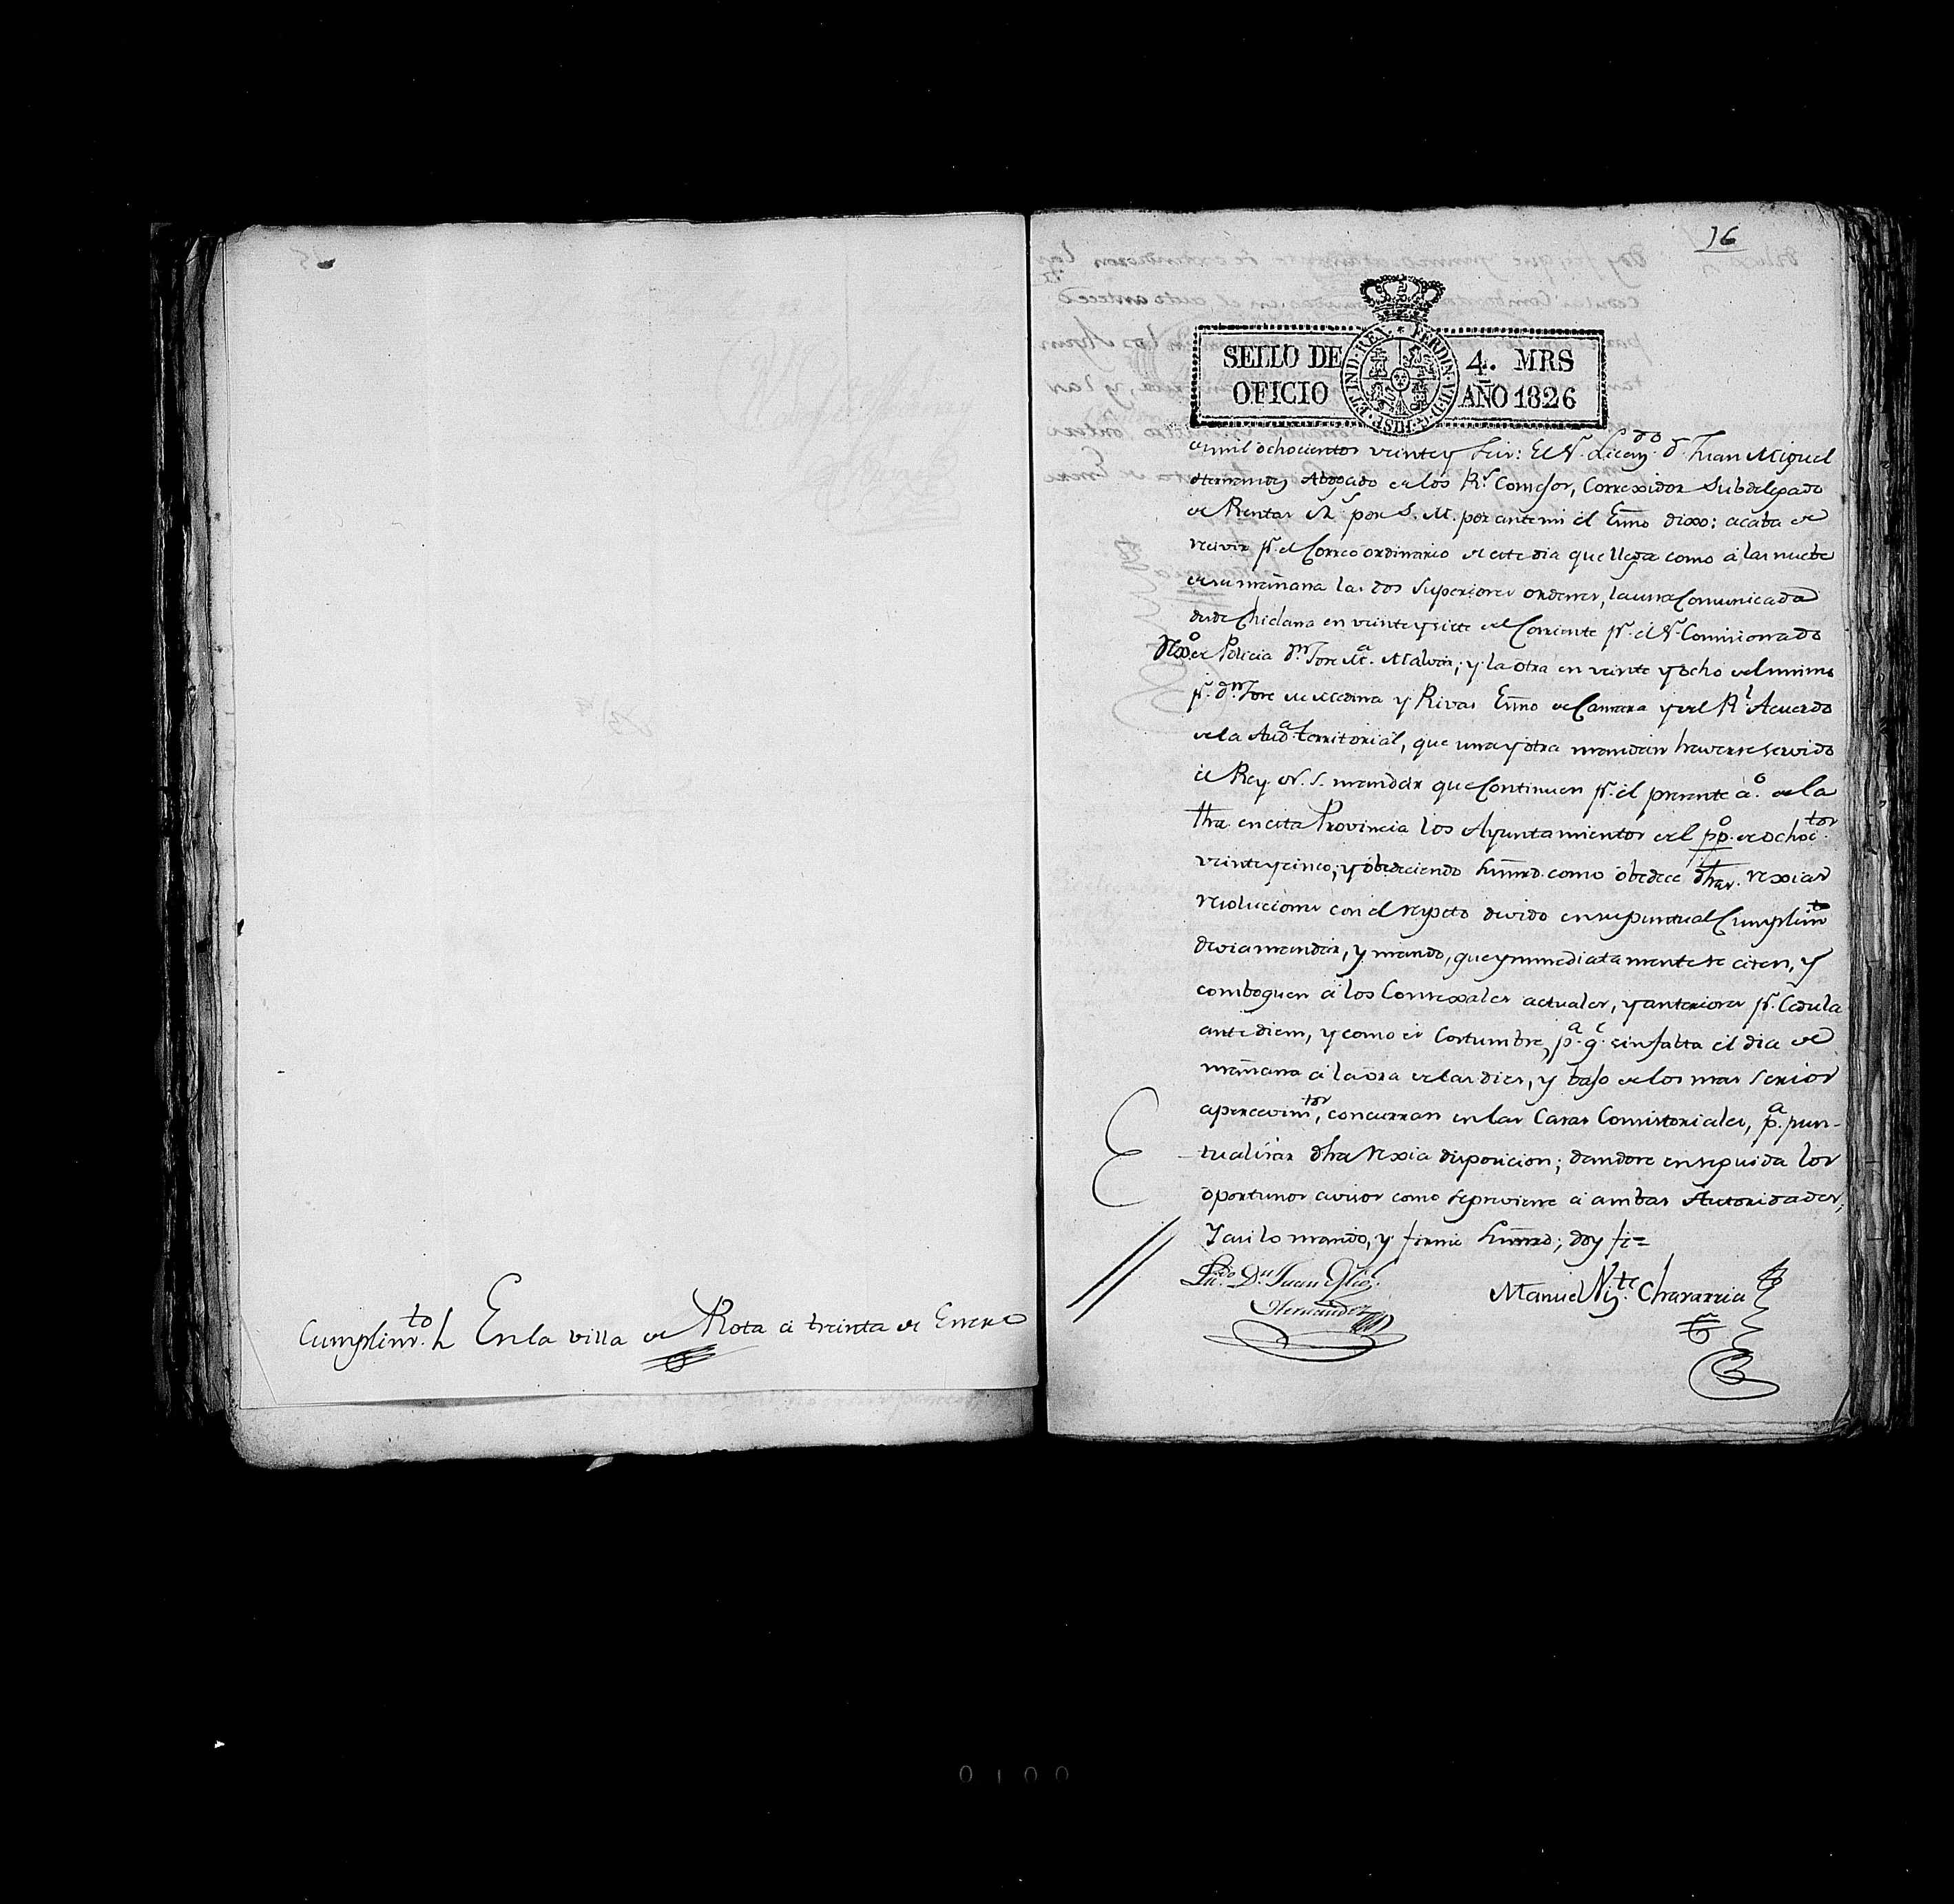 Cumplim.to En la villa de Rota a treinta de Enero
16
SELLO DE OFICIO 4. MRS AÑO 1826
FERDIN. VII. D. G. HISP. ET IND. REX
de mil ochocientos veinte y seis: El S.r Licen.do d.n Juan Miguel
Hernandez Abogado de los R.s Consejos, Correxidor Subdelegado
de Rentas por S. M. por ante mi el Esno dixo: acaba de
recivir p.r el Correo ordinario de este dia que llega como á las nuebe
de su mañana las dos superiores ordenes, la una Comunicada
desde Chiclana en veinte y siete del Corriente p.r el S.r Comisionado
de Policia d.n Jose M.a Malvar; y la otra en veinte y ocho del mismo
p.r d.n Jose de Medina y Rivas Esno de Camara y del R.l Acuerdo
de la Aud.a territorial, que una y otra mandan haverse servido
el Rey N. S. mandar que Continuen p.r el presente a.o de la
fha en esta Provincia los Ayuntamientos del pp.o de ochoc.tos
veinte y cinco; y obedeciendo Smrd. como obedece dhas. rexias
resoluciones con el respeto devido en su puntual Cumplim.to
devia mandar, y mando, que ynmediatamente se citen, y
comboquen á los Conrexales actuales, y anteriores p.r Cedula
ante diem, y como es Costumbre, p.a q.e sin falta el dia de
mañana á la ora de las dies, y bajo de los mas serios
apercevim.tos, concurran en las Casas Consistoriales, p.a pun-
tualisar dha rexia disposicion; dandose enseguida los
oportunos avisos como se previene á ambas Autoridades;
Y asi lo mando, y firmó Smrd; doy fe=
Lic.do D.n Juan Mig.l
Hernandez
Manuel Chavarria
0100